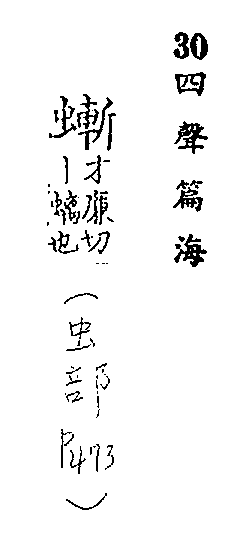 30四聲篇海
螹才廉切
丨螭也
(虫部P473)